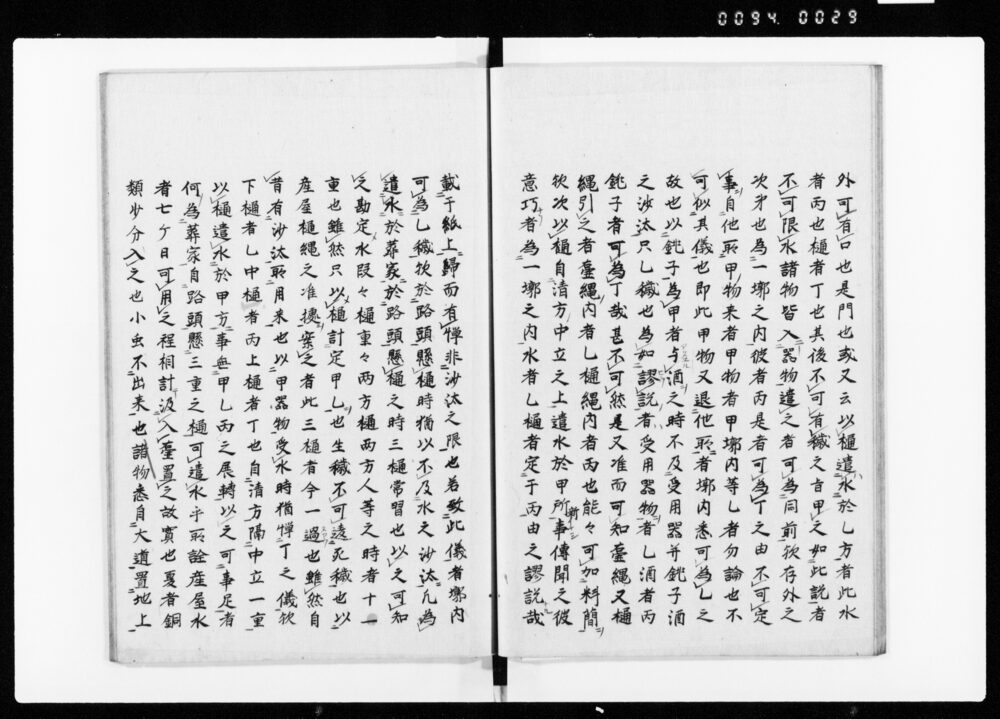 0094. 0029
外可有口也是門也或又云以樋遣水於乙方者此水
者丙也樋者丁也其後不可有穢之旨甲之如此説者
不可限水諸物皆入器物遣之者可為同前欤存外之
次第也為一墎之内彼者丙是者可為丁之由不可定
事自他所甲物来者甲物者甲墎内等乙者勿論也不
可似其儀也即此甲物又退他所者墎内悉可為乙之
故也以銚子為甲者与酒之時不及受用器并銚子酒
之沙汰只乙穢也為如謬説者受用器物者乙酒者丙
銚子者可為丁哉甚不可然是又准而可知臺縄又樋
縄引之者臺縄内者乙樋縄内者丙也能々可加料簡
欤次以樋自清方中立之上遣水於甲所事傳聞之彼
新
意巧者為一墎之内水者乙樋者定于丙由之謬説哉
載于紙上歸而有憚非沙汰之限也若致此儀者墎内
可為乙穢欤於路頭懸樋時猶以不及水之沙汰凡為
遣水於葬家於路頭懸樋之時三樋常習也以之可知
之勘定水段々樋重々両方樋両方人等之時者十一
重也雖然只以樋計定甲乙也生穢不可遠死穢也以
産屋樋縄之准據案之者此三樋者令一過也雖然自
昔有沙汰所用来也以甲器物受水時猶憚丁之儀欤
下樋者乙中樋者丙上樋者丁也自清方隔中立一重
以樋遣水於甲方事無甲乙丙之展轉以之可事足者
何為葬家自路頭懸三重之樋可遣水乎所詮産屋水
者七ケ日可用之程相計汲入臺置之故實也夏者銅
類少分入之也小虫不出来也諸物悉自大道置地上